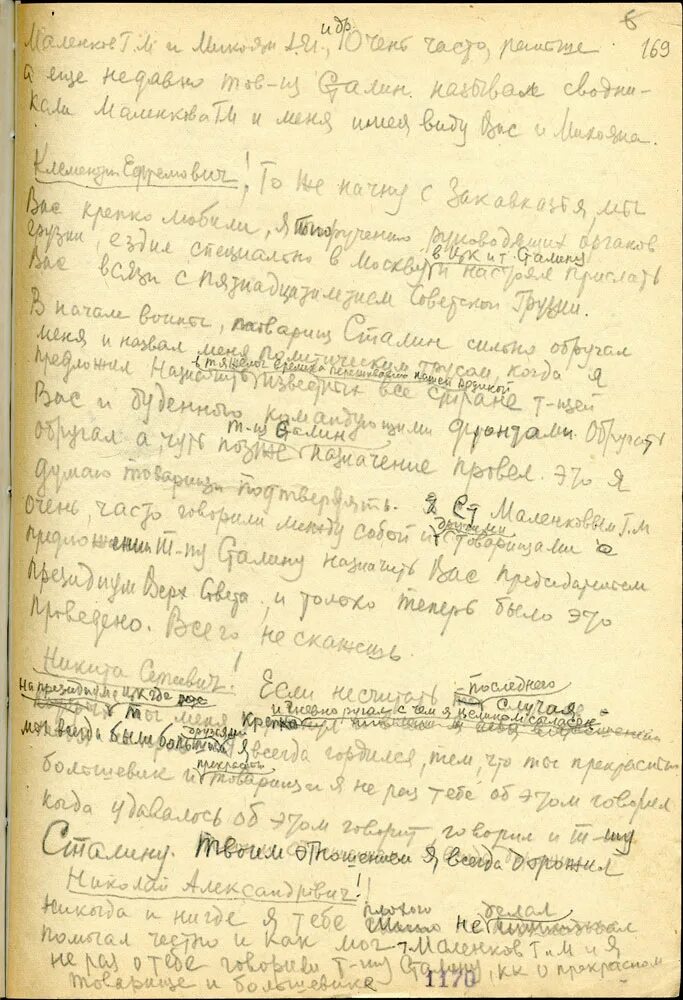 6
169
и др.
Маленков Г.М и Микоян А.И., Очень часто, раньше
а еще недавно тов-щ Сталин. называл сводни-
ками Маленкова ГМ и меня имея виду Вас и Микояна.
Клементий Ефремович! То же начну с Закавказья, мы
Вас крепко любили, я по поручению руководящих органов
Грузии, ездил специально в Москву и настоял прислать
в ЦК и т. Сталину
Вас всвязи с пятнадцатилетием Советской Грузии.
В начале войны, товарищ Сталин сильно обругал
меня и назвал меня политическим трусом, когда я
предложил Назначить известных все стране т-щей
в тяжелые времена переживаемые нашей родиной
Вас и Буденного командующими фронтами. Обругать
обругал а, чуть позже т-щ Сталин назначение провел. Это я
думаю товарищи подтвердять. Я с Маленковым Г.М
очень, часто говорили между собой и с товарищами о
другими
предложении т-щу Сталину назначить Вас председателем
президиум Верх Совета, и только теперь было это
проведено. Всего не скажешь.
Никита Сергеевич! Если несчитать последнего
случая
на президиуме ЦК где
ты меня крепко и гневно ругал с чем я целиком согласен
мы всегда были большими друзьями я всегда гордился, тем, что ты прекрасный
большевик и прекрасный товарищ и я не раз тебе об этом говорил
когда удавалось об этом говорит, говорил и т-щу
Сталину. Твоим отношением я, всегда дорожил
Николай Александрович!!
Никогда и нигде я тебе плохого не делал
помогал честно и как мог - Маленков Г.М и я
не раз о тебе говорили т-щу Сталину, кк о прекрасном
товарище и большевике
1170